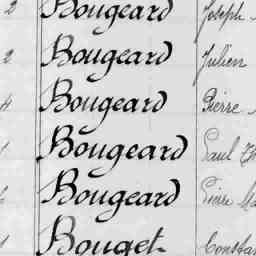 2 Bougeard Joseph
2 Bougeard Julien
4 Bougeard Pierre
Bougeard Paul
Bougeard Pierre
Bouget Constan